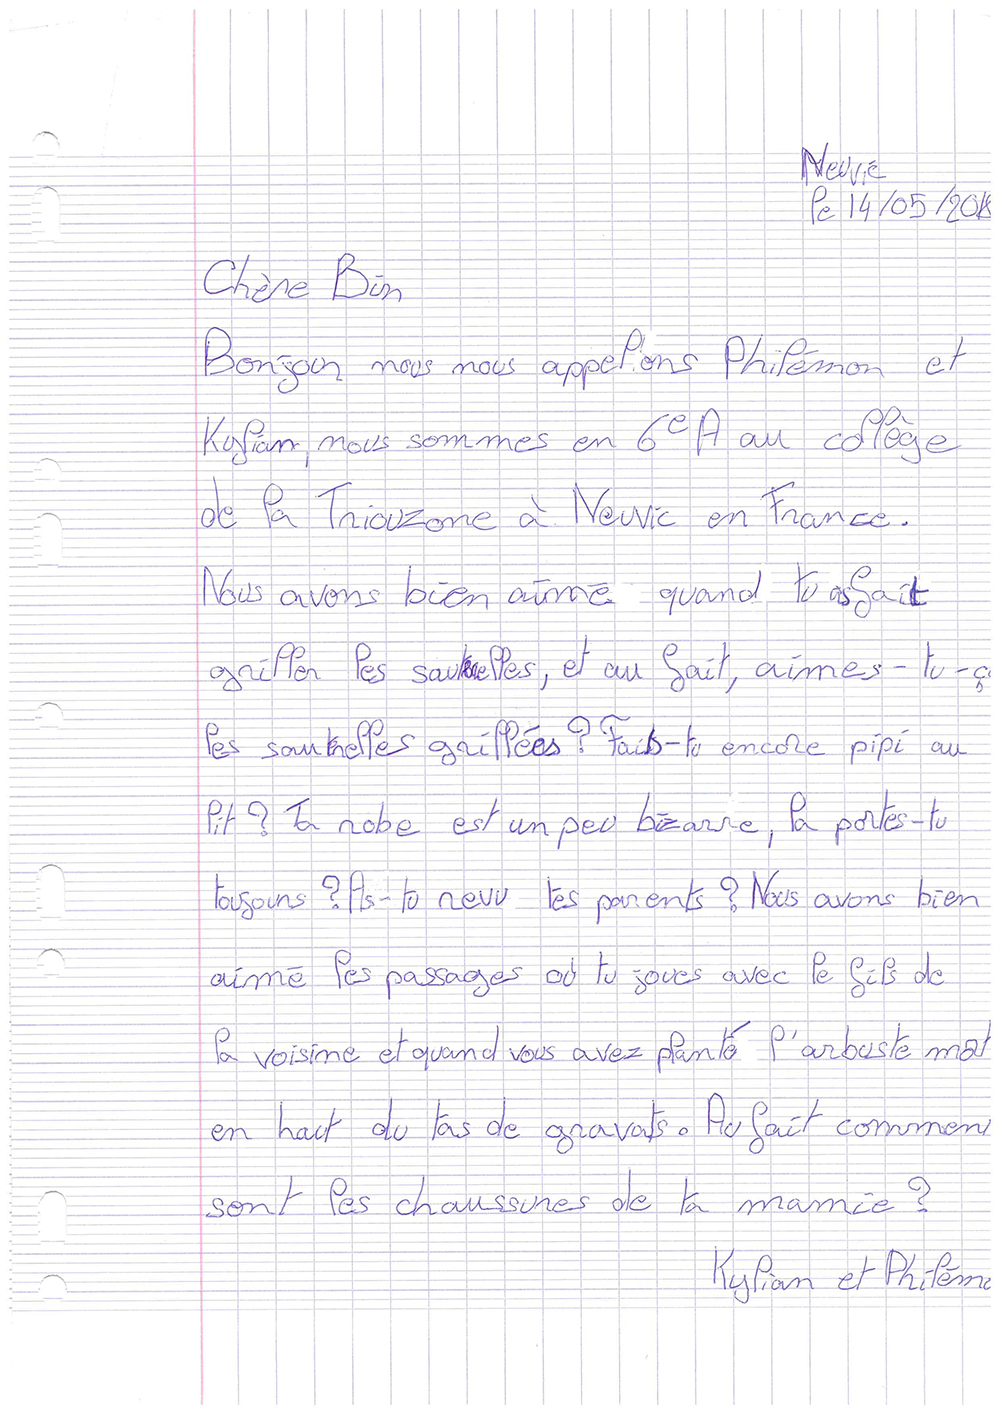 Neuvic
le 14/05/2018
Chère Bin
Bonjour nous nous appelions Philémon et
Kylian, nous sommes en 6e A au collège
de la Triouzoune à Neuvic en France.
Nous avons bien aimé quand tu as fait
griller les sauterelles, et au fait, aimes-tu-ça
les sauterelles grillées? Fais-tu encore pipi au
lit? Ta robe est un peu bizarre, la portes-tu
toujours? As-tu revu tes parents? Nous avons bien
aimé les passages où tu joues avec le fils de
la voisine et quand vous avez planté l'arbuste mort
en haut du tas de gravats. Au fait commen
sont les chaussures de ta mamie?
Kylian et Philémo